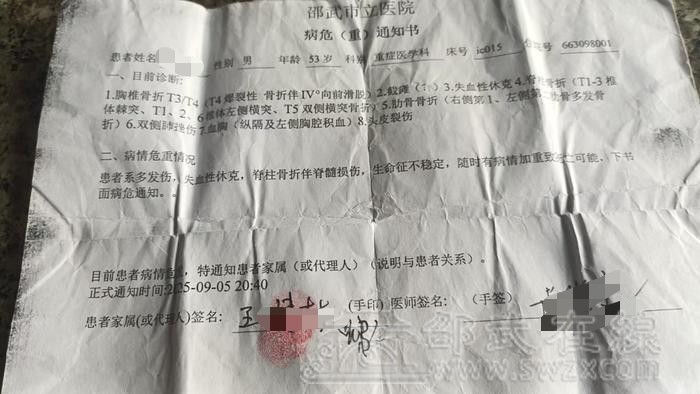 邵武市立医院
病危（重）通知书
患者姓名 性别 男 年龄 53岁 科别 重症医学科 床号 ic015 住院号 663098001
一、目前诊断:
1.胸椎骨折T3/T4（T4爆裂性 骨折伴IV°向前滑脱）2.截瘫（ ）3.失血性休克 4.脊柱骨折（T1-3椎
体棘突、T1、2、6椎体左侧横突、T5双侧横突骨折）5.肋骨骨折（右侧第1、左侧第 肋骨多发骨
折）6.双侧肺挫伤 7.血胸（纵隔及左侧胸腔积血）8.头皮裂伤
二、病情危重情况
患者系多发伤，失血性休克，脊柱骨折伴脊髓损伤，生命征不稳定，随时有病情加重致死亡可能，下书
面病危通知。。
目前患者病情危 ，特通知患者家属（或代理人）（说明与患者关系）。
正式通知时间:2025-09-05 20:40
患者家属(或代理人)签名: (手印) 医师签名: (手签)
邵武在线
www.swzx.com